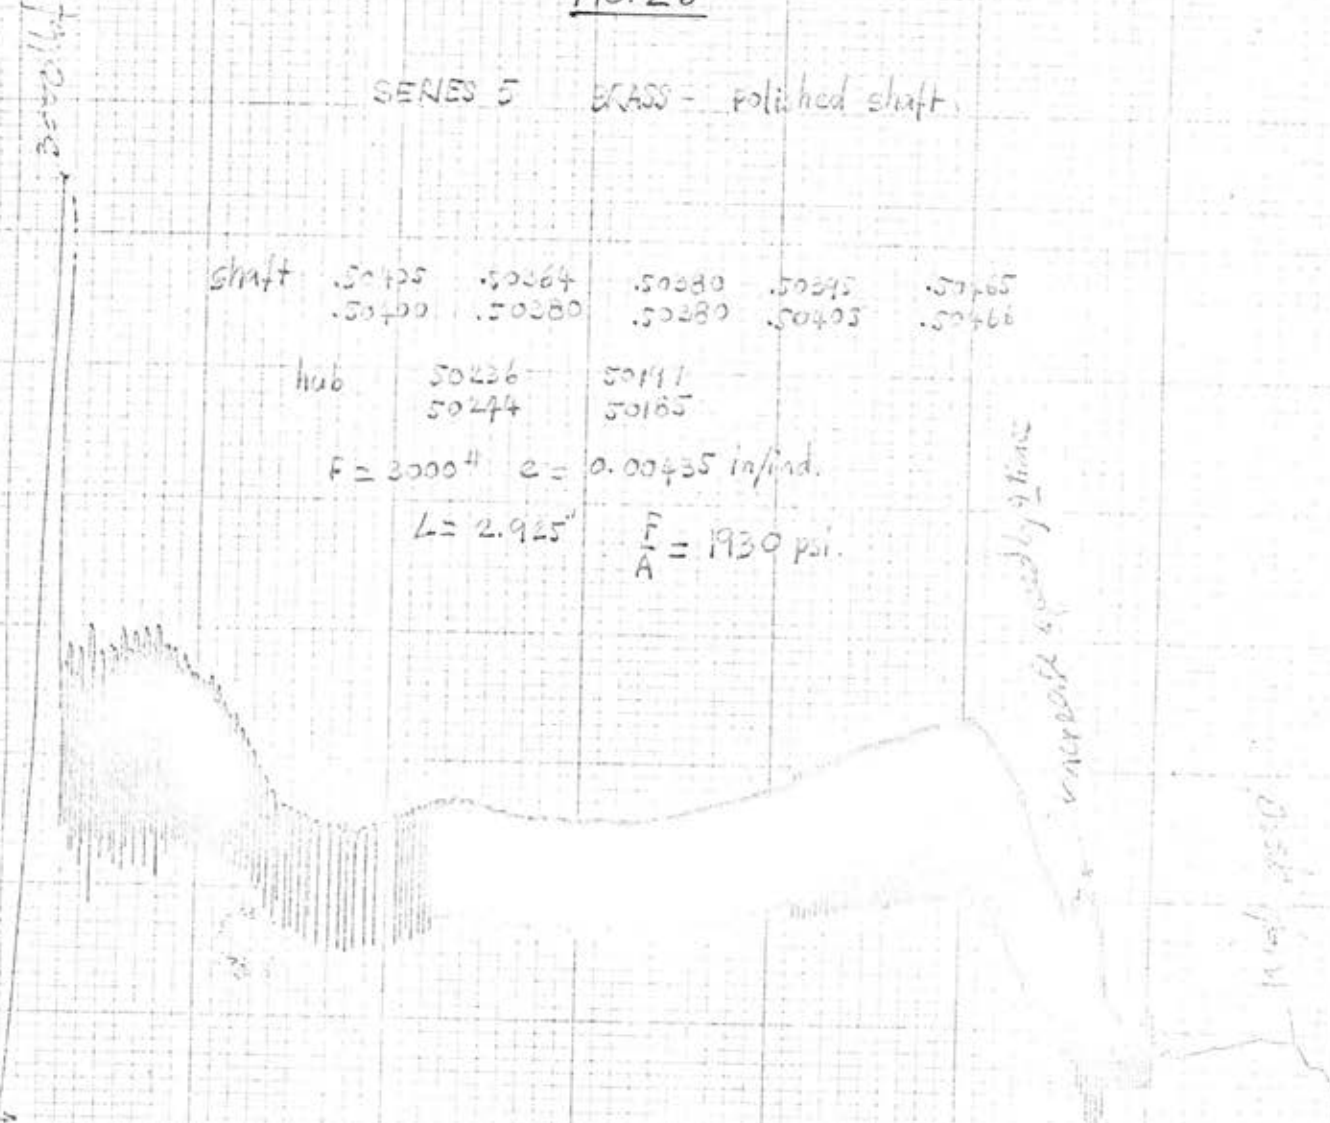 SERIES 5 BRASS - polished shaft.
shaft .50435 .50364 .50380 .50395 .50465
.50400 .50380 .50380 .50405 .50466
hub 50236 50191
50244 50185
F = 3000# e = 0.00435 in/ind.
L = 2.925" F/A = 1930 psi.
speed by 9 time